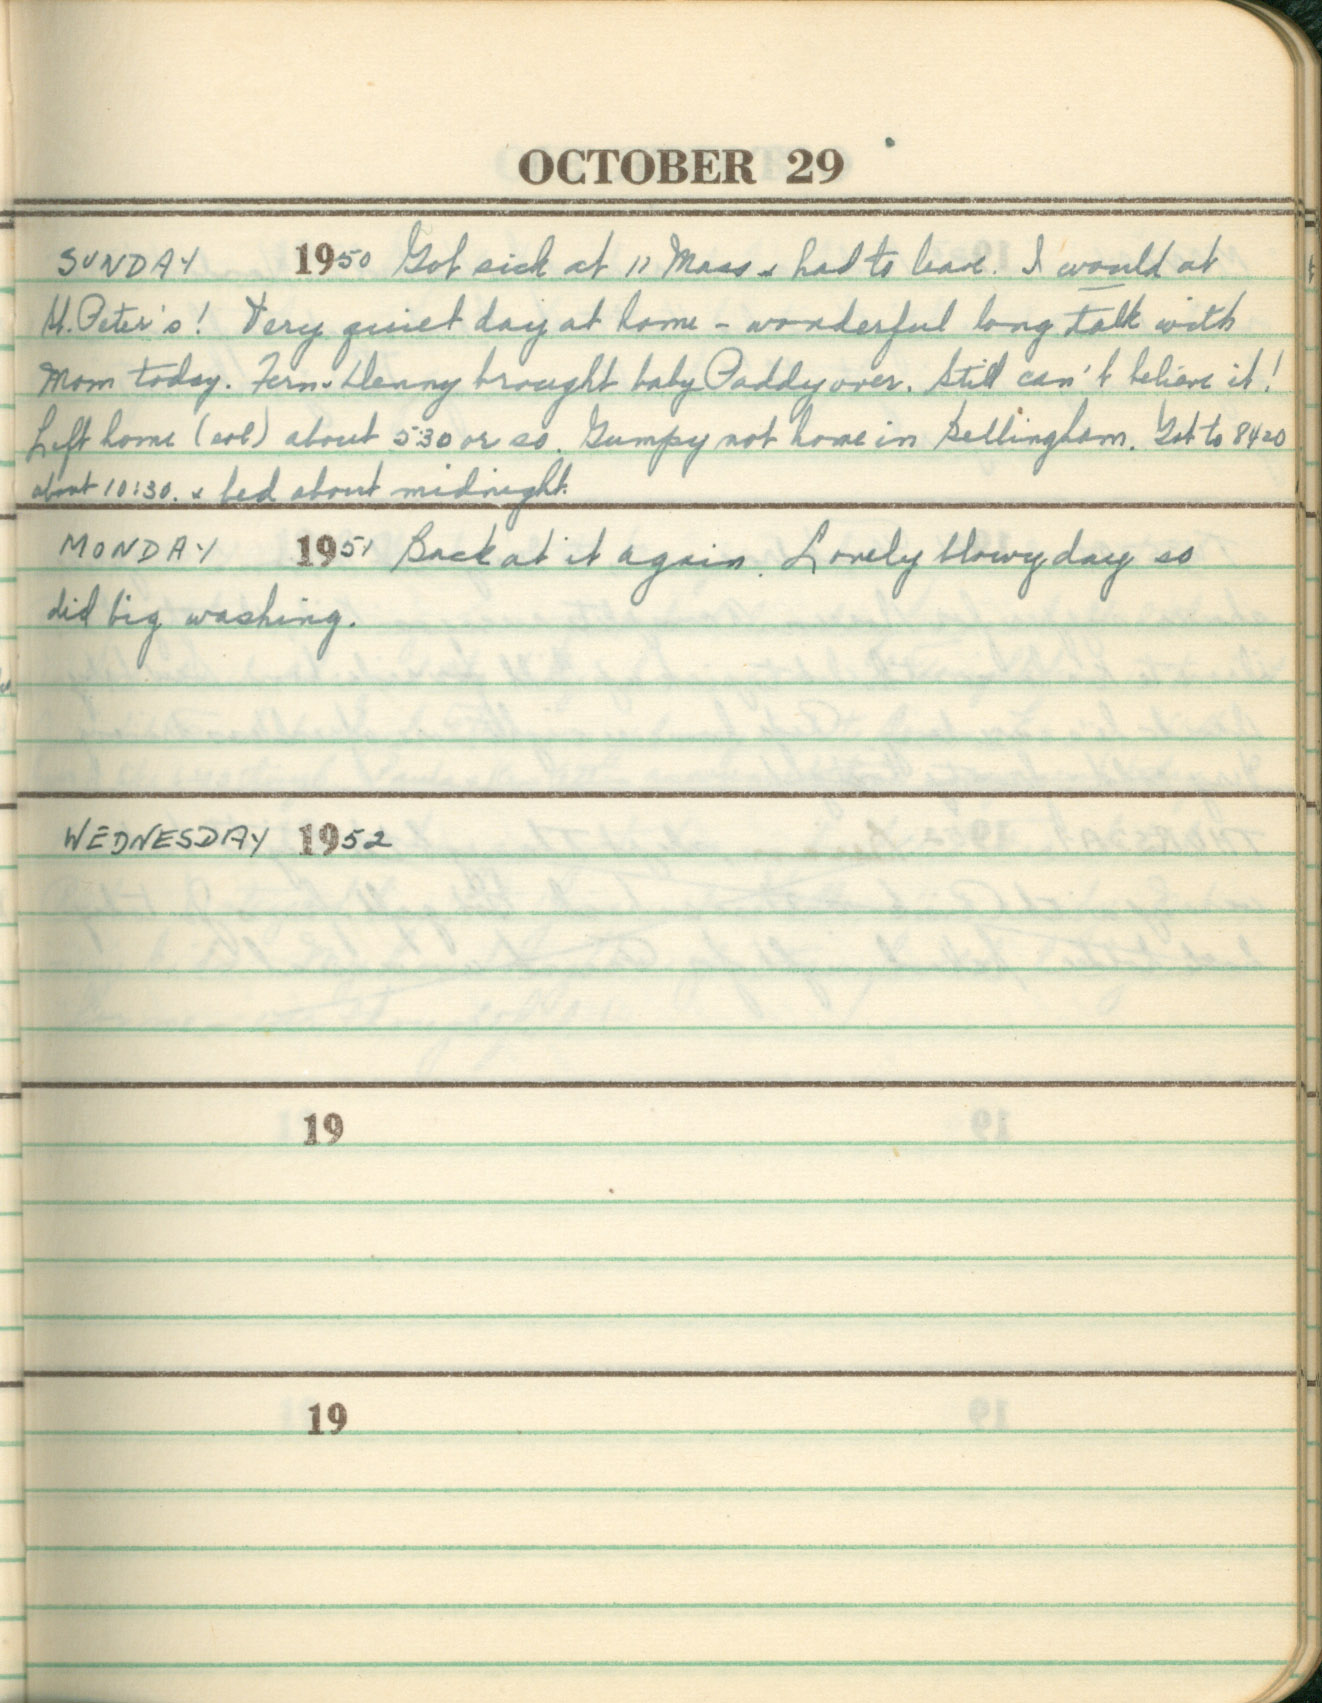 OCTOBER 29
SUNDAY 1950 Got sick at 11 Mass & had to leave. I would at
St. Peter's! Very quiet day at home - wonderful long talk with
Mom today. Fern & Denny brought baby Paddy over. Still can't believe it!
Left home (sob) about 530 or so. Gumpy not home in Bellingham. Got to 8420
about 10:30. & bed about midnight.
MONDAY 1951 Back at it again. Lovely blowy day so
did big washing.
WEDNESDAY 1952
19
19